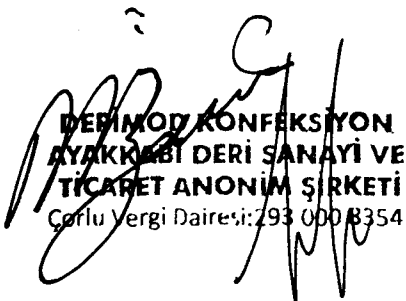 DERİMOD KONFEKSİYON
AYAKKABI DERİ SANAYİ VE
TİCARET ANONİM ŞİRKETİ
Çorlu Vergi Dairesi:293 000 8354